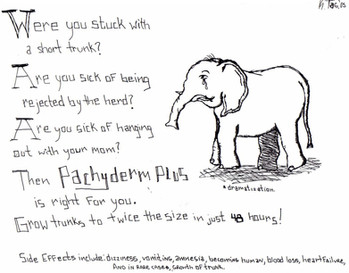 Were you stuck with
a short trunk?
Are you sick of being
rejected by the herd?
Are you sick of hanging
out with your mom?
Then Pachyderm Plus
is right for you.
Grow trunks to twice the size in just 48 hours!
*dramatization.
Side Effects include: dizziness, vomiting, amnesia, becoming human, blood loss, heart failure,
and in rare cases, growth of trunk.